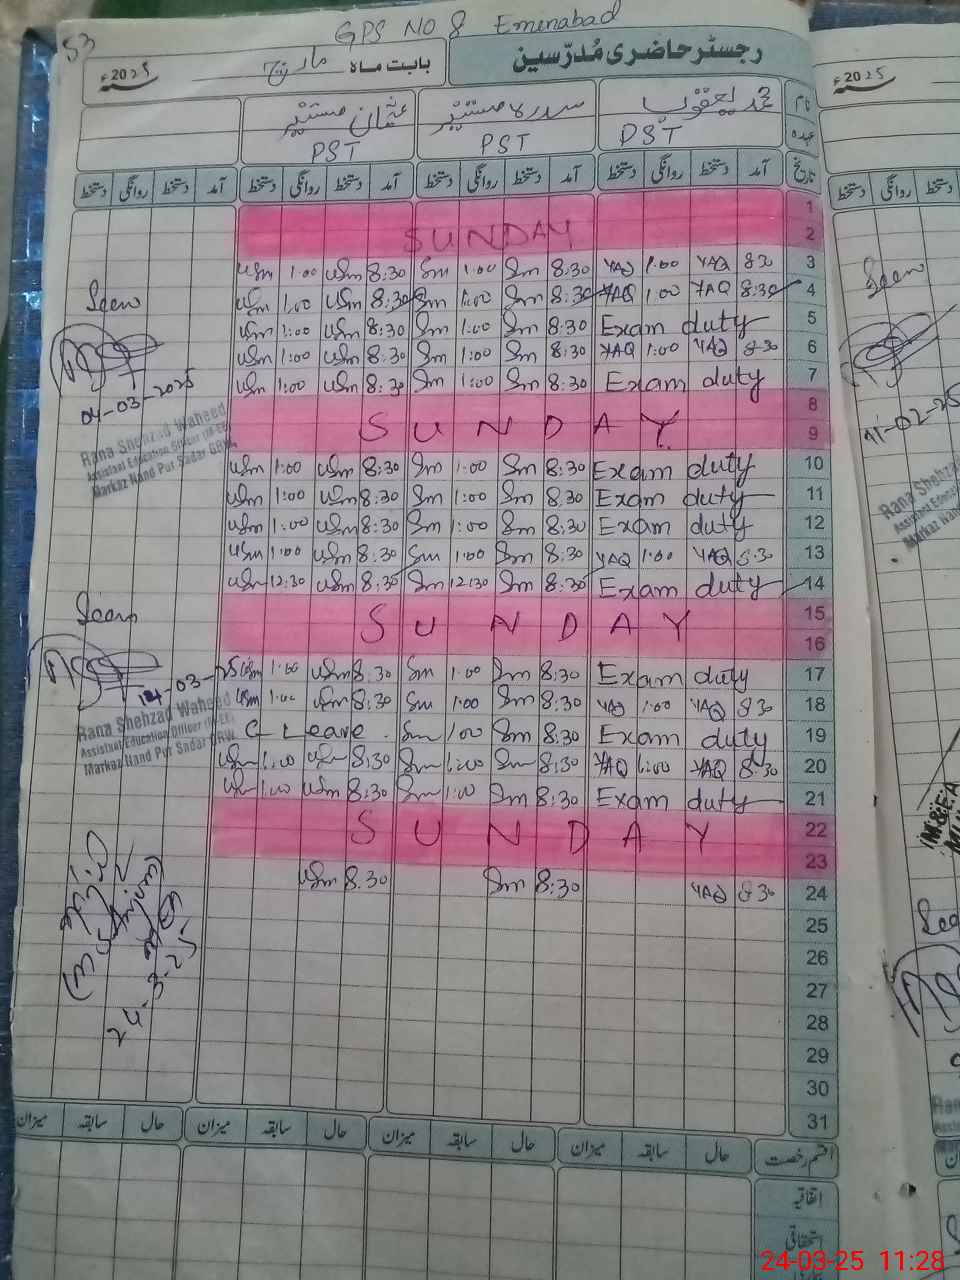 53
GPS NO 8 Emenabad
رجسٹر حاضری مُدرّسین
بابت ماہ مارچ 2025ء
نام محمد یعقوب سدرہ مستنیر عثمان مستنیر
عہدہ PST PST PST
تاریخ آمد دستخط روانگی دستخط آمد دستخط روانگی دستخط آمد دستخط روانگی دستخط آمد دستخط روانگی دستخط
1
SUNDAY 2
usm 1:00 usm 8:30 Sm 1:00 Sm 8:30 YAQ 1:00 YAQ 8 30 3
usm 1:00 usm 8:30 Sm 1:00 Sm 8:30 YAQ 1:00 YAQ 8:30 4
usm 1:00 usm 8:30 Sm 1:00 Sm 8:30 Exam duty 5
usm 1:00 usm 8:30 Sm 1:00 Sm 8:30 YAQ 1:00 YAQ 8 30 6
usm 1:00 usm 8:30 Sm 1:00 Sm 8:30 Exam duty 7
8
SUNDAY 9
usm 1:00 usm 8:30 Sm 1:00 Sm 8:30 Exam duty 10
usm 1:00 usm 8:30 Sm 1:00 Sm 8.30 Exam duty 11
usm 1:00 usm 8:30 Sm 1:00 Sm 8:30 Exam duty 12
usm 1:00 usm 8:30 Sm 1:00 Sm 8:30 YAQ 1:00 YAQ 8:30 13
usm 12:30 usm 8:30 Sm 12:30 Sm 8:30 Exam duty 14
SUNDAY 15
16
usm 1:00 usm 8:30 Sm 1:00 Sm 8:30 Exam duty 17
usm 1:00 usm 8:30 Sm 1:00 Sm 8:30 YAQ 1:00 YAQ 8 30 18
C Leave. Sm 1:00 Sm 8:30 Exam duty 19
usm 1:00 usm 8:30 Sm 1:00 Sm 8:30 YAQ 1:00 YAQ 8:30 20
usm 1:00 usm 8:30 Sm 1:00 Sm 8:30 Exam duty 21
SUNDAY 22
23
usm 8.30 Sm 8:30 YAQ 8 30 24
25
26
27
28
29
30
31
قسم رخصت حال سابقہ میزان حال سابقہ میزان حال سابقہ میزان حال سابقہ میزان
اتفاقیہ
استحقاقی
Seen
04-03-2025
Rana Shehzad Waheed
Assistant Education Officer (M-EE)
Markaz Nand Pur Sadar GRW.
Seen
14-03-25
Rana Shehzad Waheed
Assistant Education Officer (M-EE)
Markaz Nand Pur Sadar GRW.
24-3-25
2025ء
دستخط روانگی دستخط
Seen
11-02-25
Rana Shehzad
Assistant Educa
Markaz Nand
24-03-25 11:28